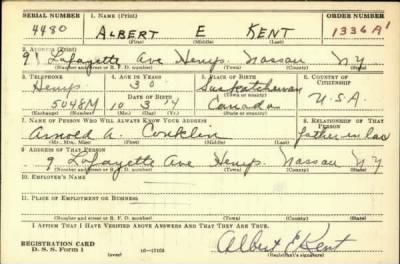 SERIAL NUMBER 1. NAME (Print) ORDER NUMBER
4480 ALBERT E KENT 1336A
(First) (Middle) (Last)
2. ADDRESS (Print)
91 Lafayette Ave Hemps. Nassau N Y
(Number and street or R. F. D. number) (Town) (County) (State)
3. TELEPHONE 4. AGE IN YEARS 5. PLACE OF BIRTH 6. COUNTRY OF CITIZENSHIP
Hemps 30 Saskatchewan
DATE OF BIRTH
5048M 10 3 Canada U.S.A.
(Exchange) (Number) (Mo.) (Day) (Yr.) (State or country)
7. NAME OF PERSON WHO WILL ALWAYS KNOW YOUR ADDRESS 8. RELATIONSHIP OF THAT PERSON
Arnold A. Conklin father in law
(Mr., Mrs., Miss) (First) (Middle) (Last)
9. ADDRESS OF THAT PERSON
91 Lafayette Ave Hemps. Nassau N Y
(Number and street or R. F. D. number) (Town) (County) (State)
10. EMPLOYER'S NAME
11. PLACE OF EMPLOYMENT OR BUSINESS
(Number and street or R. F. D. number) (Town) (County) (State)
I AFFIRM THAT I HAVE VERIFIED ABOVE ANSWERS AND THAT THEY ARE TRUE.
REGISTRATION CARD
D. S. S. Form 1 (over) Albert E Kent
(Registrant's signature)